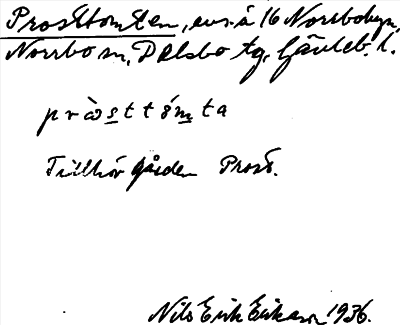 Prosttomten, evs. å 16 Norrbobyn,
Norrbo sn, Delsbo tg, Gävleb. l.
pròsttómta
Tillhör gården Prost.
Nils Erik Eriksson 1936.